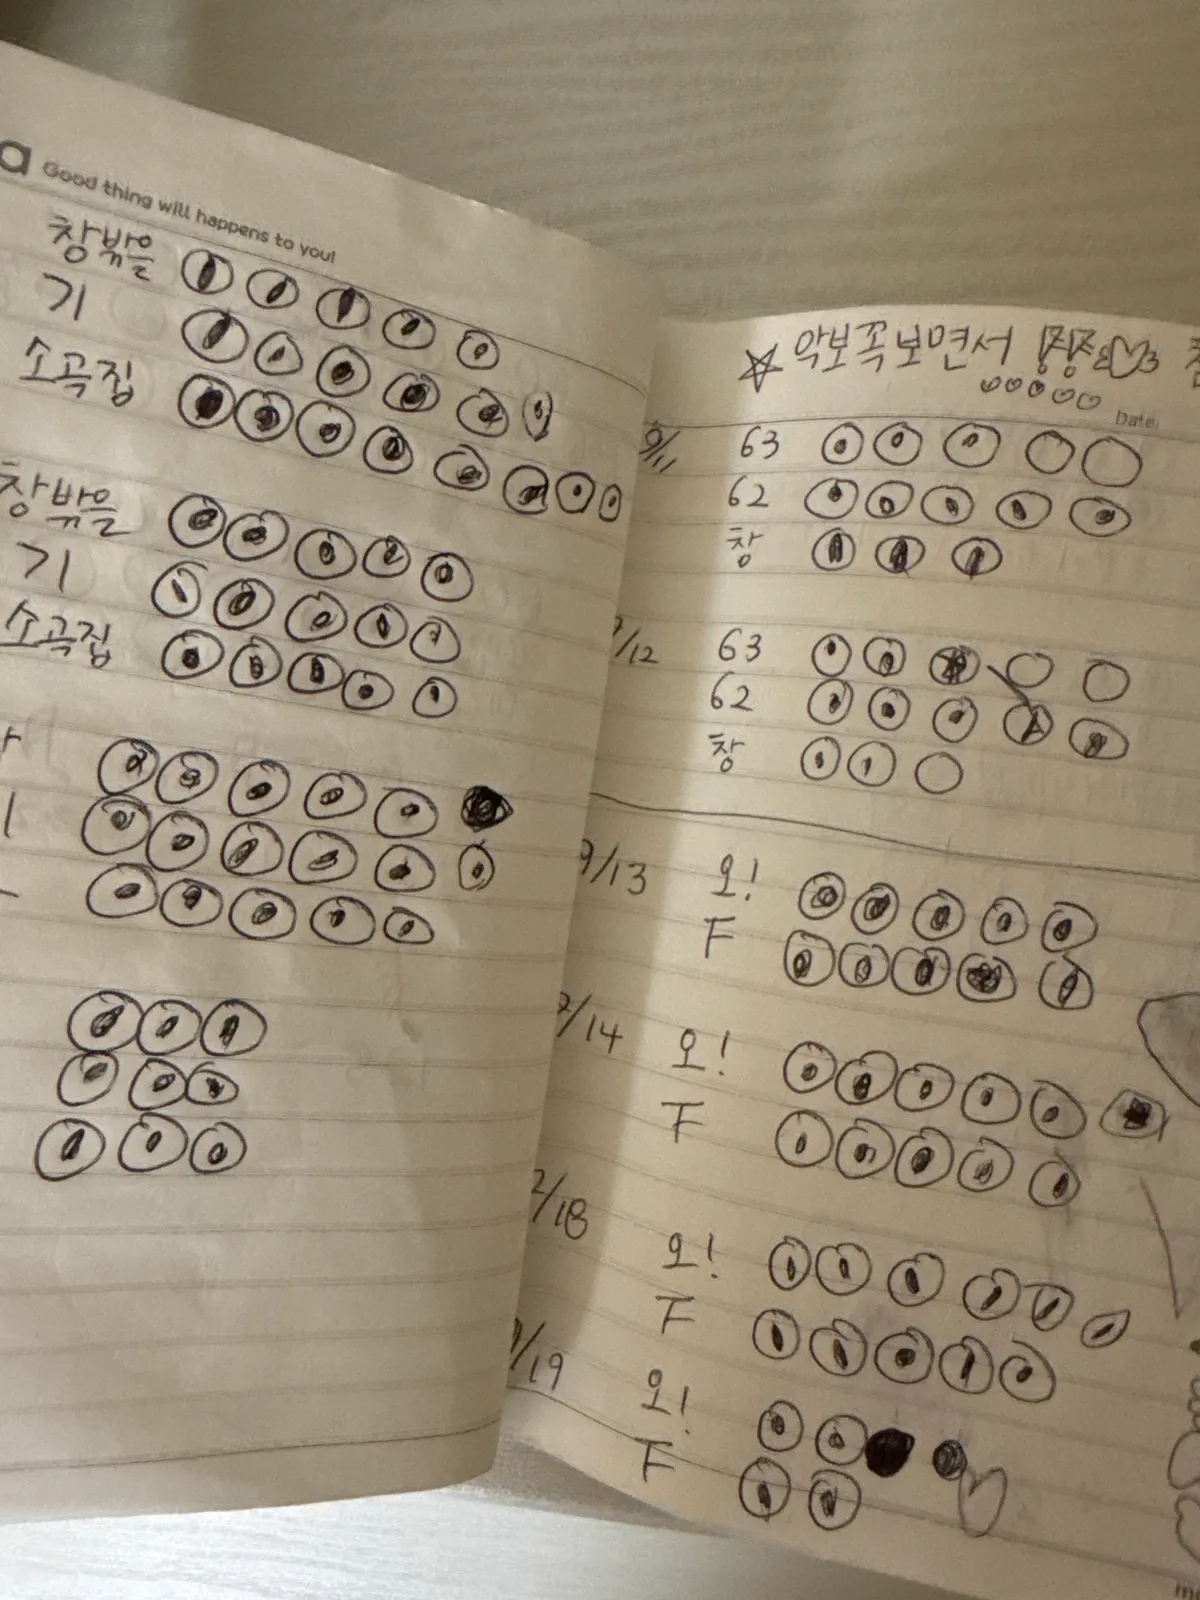 Good thing will happens to you!
창밖을
기
소곡집
창밖을
기
소곡집
악보 꼭 보면서
Date.
63
62
창
/12
63
62
창
9/13
오!
F
/14
오!
F
/18
오!
F
/19
오!
F